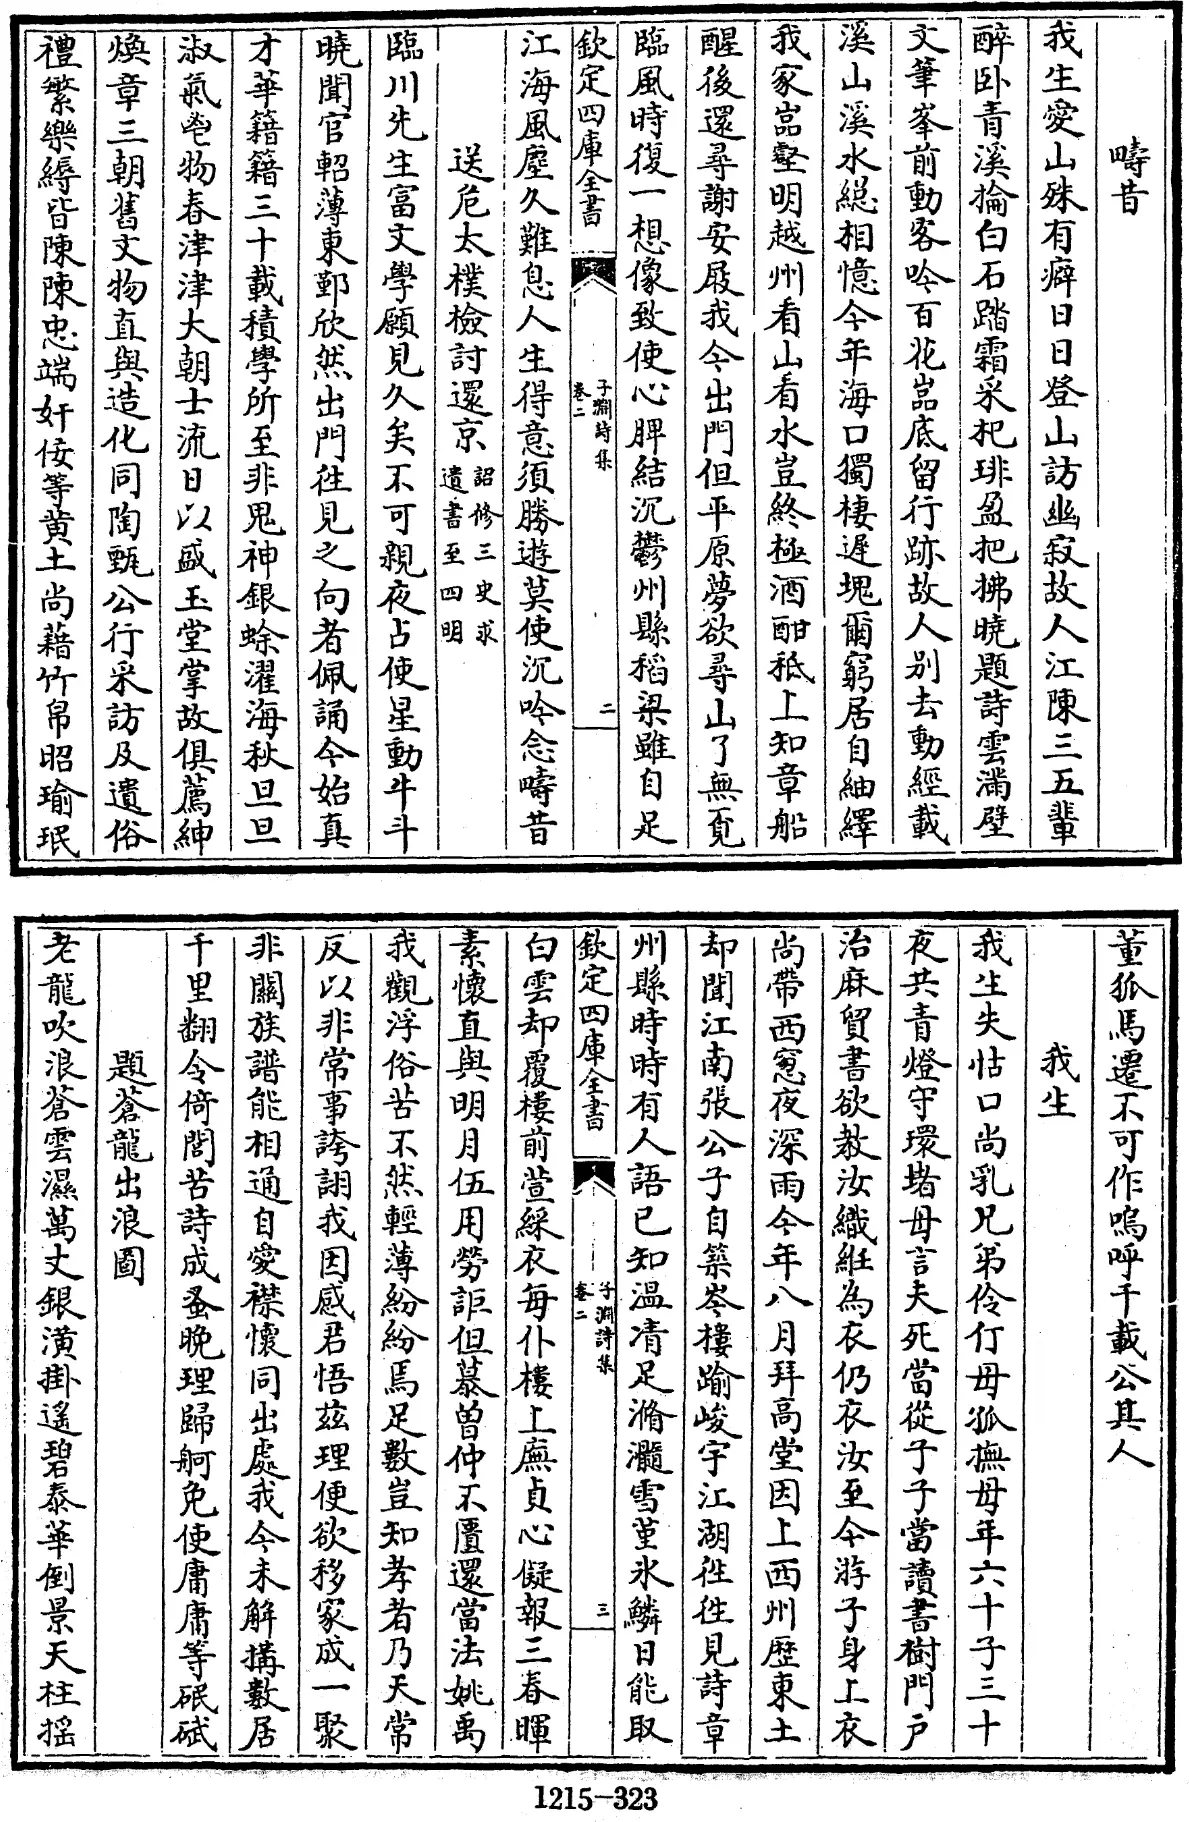 疇昔
我生愛山殊有癖日日登山訪幽寂故人江陳三五輩
醉卧青溪掄白石踏霜采杞琲盈把拂曉題詩雲滿壁
文筆峯前動客吟百花嵓底留行跡故人别去動經載
溪山溪水緫相憶今年海口獨棲遲塊爾窮居自紬繹
我家嵓壑明越州看山看水豈終極酒酣秪上知章船
醒後還尋謝安屐我今出門但平原夢欲尋山了無覓
臨風時復一想像致使心脾結沉鬱州縣稻粱雖自足
欽定四庫全書
子淵詩集
卷二
二
江海風塵久難息人生得意須勝遊莫使沉吟念疇昔
送危太樸檢討還京
詔修三史求
遺書至四明
臨川先生富文學願見久矣不可親夜占使星動牛斗
曉聞官軺薄東鄞欣然出門往見之向者佩誦今始真
才華籍籍三十載積學所至非鬼神銀蜍濯海秋旦旦
淑氣皰物春津津大朝士流日以盛玉堂掌故俱薦紳
煥章三朝舊文物直與造化同陶甄公行采訪及遺俗
禮繁樂縟皆陳陳忠端奸佞等黄土尚藉竹帛昭瑜珉
董狐馬遷不可作嗚呼千載公其人
我生
我生失怙口尚乳兄弟伶仃母孤撫母年六十子三十
夜共青燈守環堵母言夫死當從子子當讀書樹門户
治麻貿書欲教汝織絍為衣仍衣汝至今游子身上衣
尚帶西窻夜深雨今年八月拜高堂因上西州歴東土
却聞江南張公子自築岑樓踰峻宇江湖往往見詩章
州縣時時有人語已知温凊足滫瀡雪堇氷鱗日能取
欽定四庫全書
子淵詩集
卷二
三
白雲却覆樓前萱綵衣每仆樓上廡貞心儗報三春暉
素懷直與明月伍用勞詎但慕曽仲不匱還當法姚禹
我觀浮俗苦不然輕薄紛紛焉足數豈知孝者乃天常
反以非常事誇詡我因感君悟兹理便欲移家成一聚
非關族譜能相通自愛襟懷同出處我今未解搆數居
千里翻令倚閭苦詩成蚤晚理歸舸免使庸庸等碔砆
題蒼龍出浪圖
老龍吹浪蒼雲濕萬丈銀潢掛遥碧泰華倒景天柱揺
1215-323